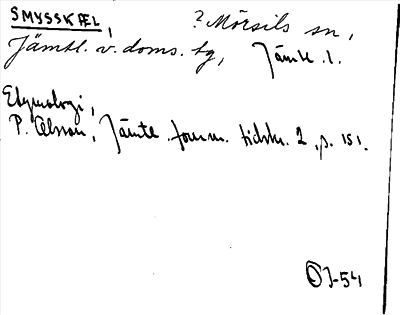 SMYSSKÆL, ? Mörsils sn,
Jämtl. v. doms. tg, Jämtl. l.
Etymologi,
P. Olsson, Jämtl. fornm. tidskr. 2, p. 151.
OJ-54